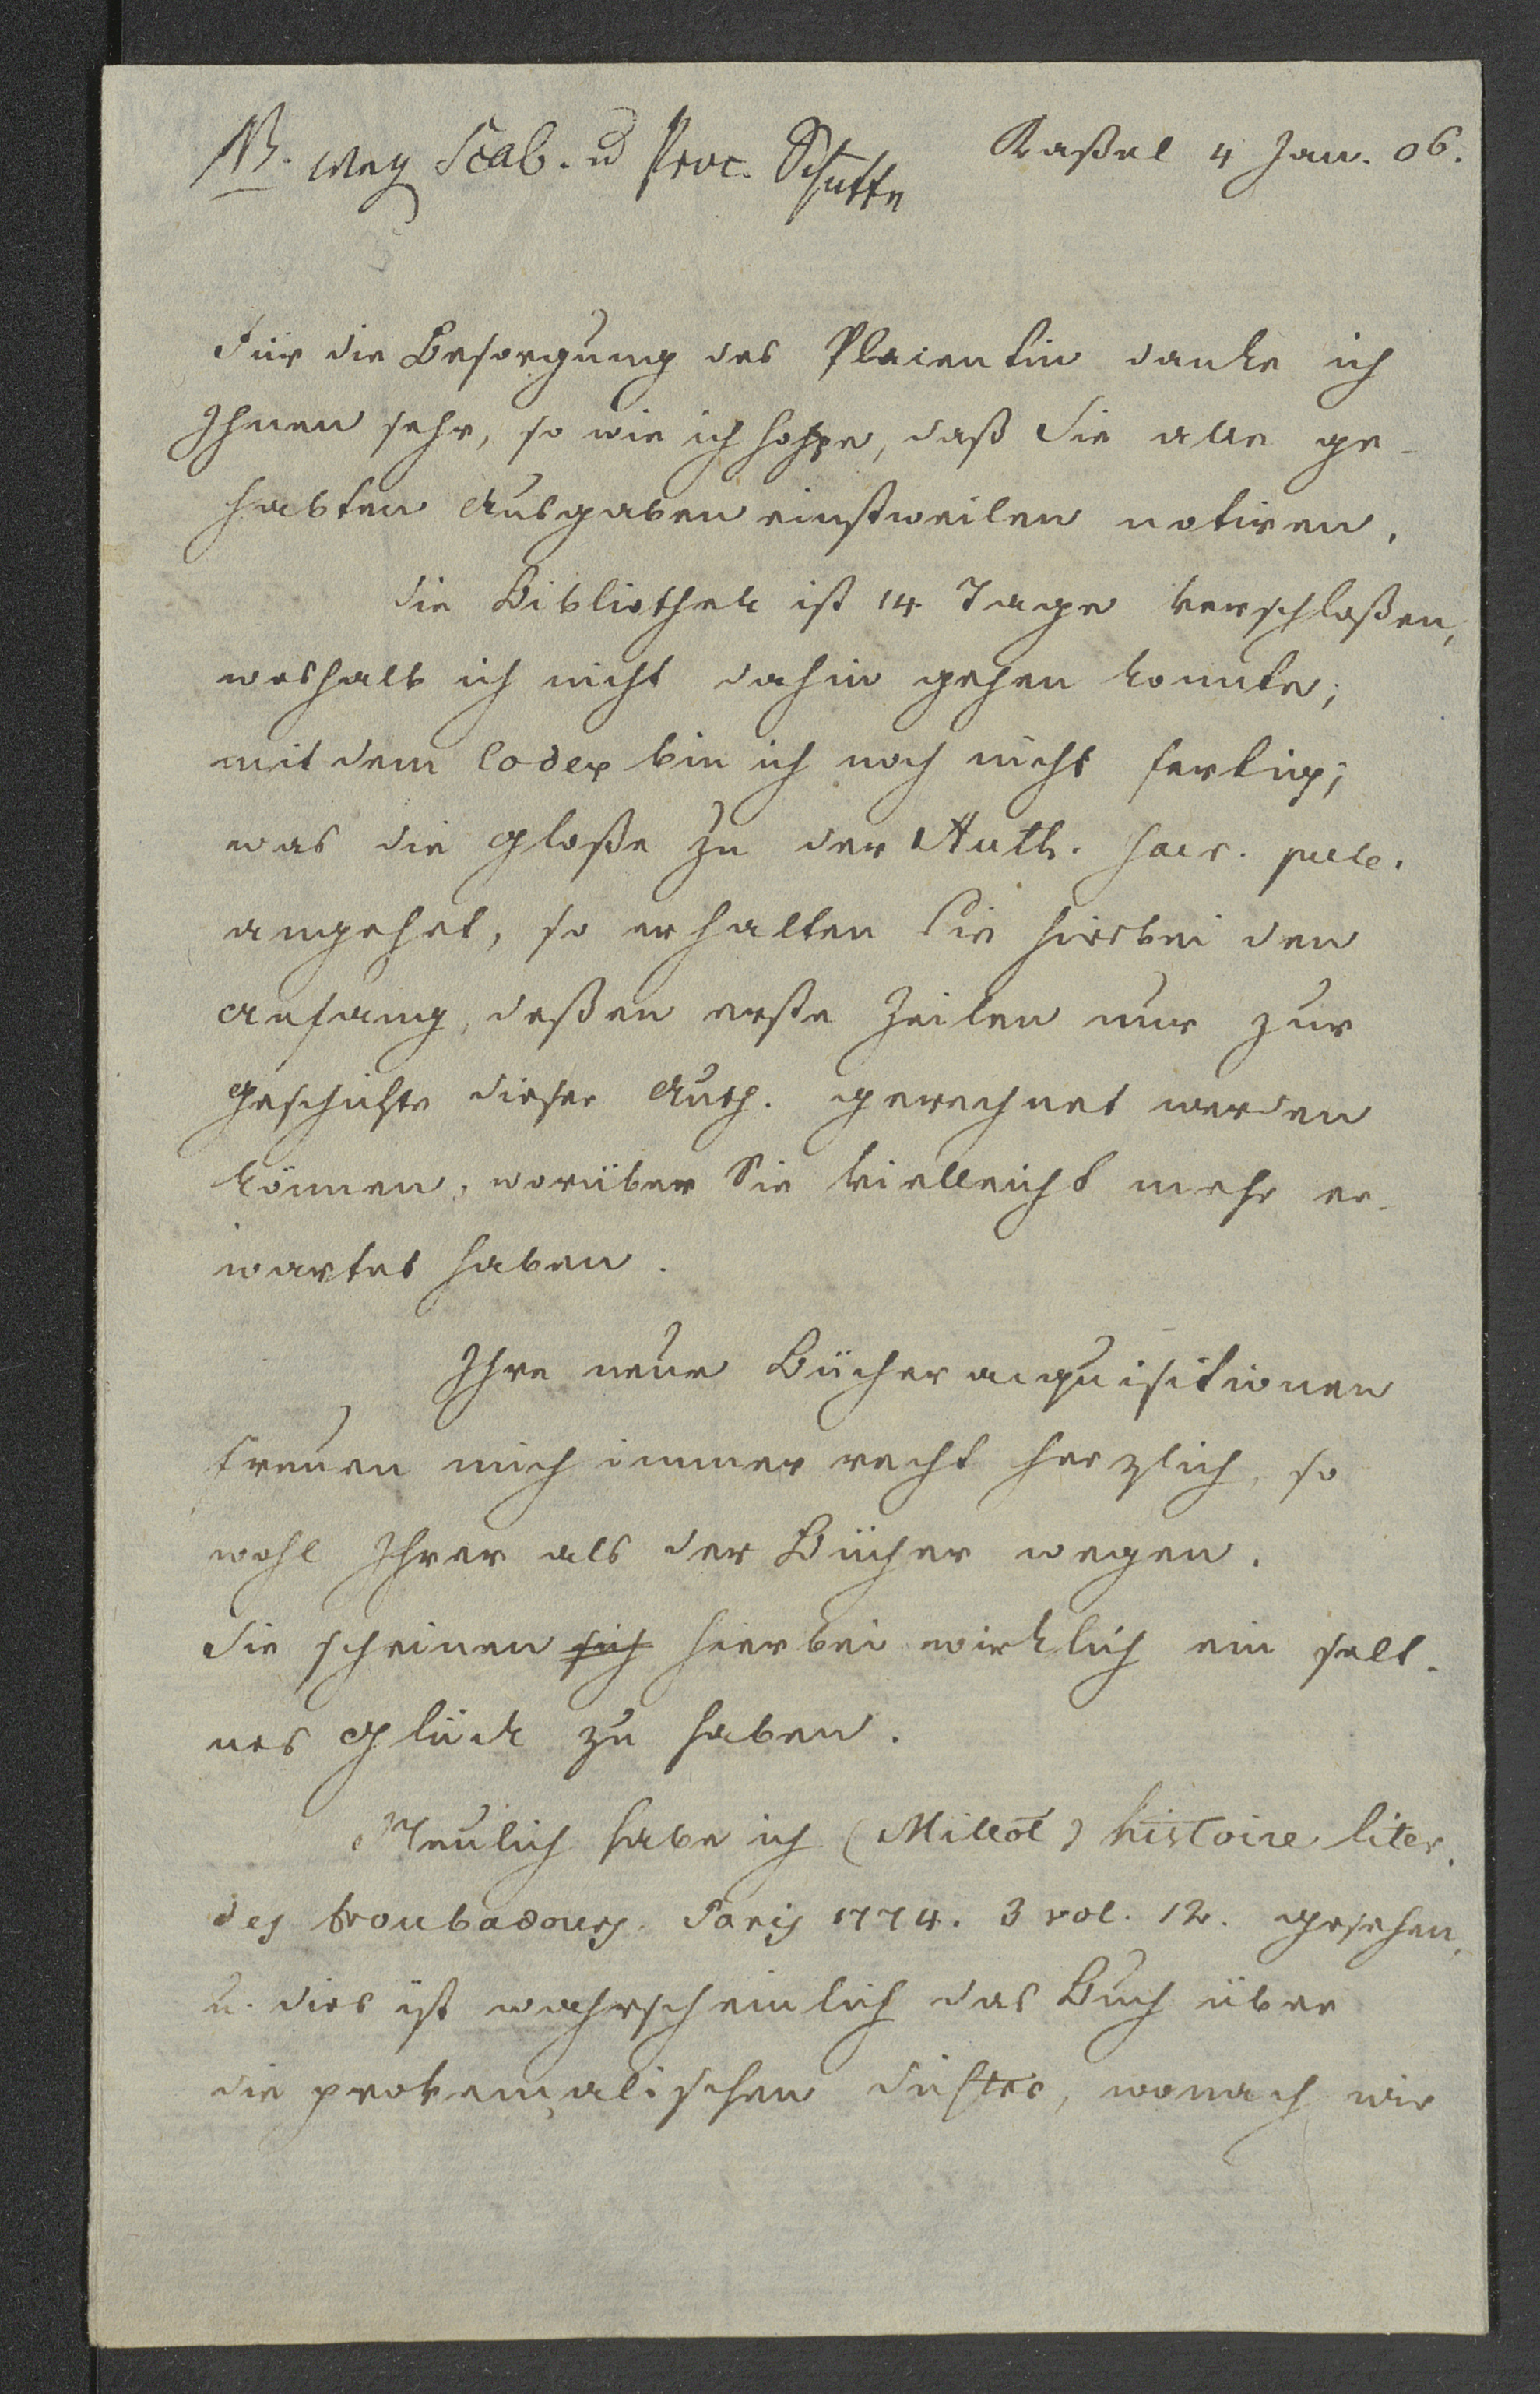 NB. weg Scab. u Proc. Schutte
Kaßel 4 Jan. 06.
Für die Besorgung des Placentin danke ich
Ihnen sehr, so wie ich hoffe, daß Sie alle ge-
habten Ausgaben einstweilen notiren.
Die Bibliothek ist 14 Tage verschloßen,
weshalb ich nicht dahin gehen konnte;
mit dem Codex bin ich noch nicht fertig;
was die Gloße zu der Auth. sacr. pue.
angehet, so erhalten Sie hierbei den
Anfang, deßen erste Zeilen nur zur
Geschichte dieser Auth. gerechnet werden
können, worüber Sie vielleicht mehr er-
wartet haben.
Ihre neue Bücheracquisitionen
freuen mich immer recht herzlich, so
wohl Ihrer als der Bücher wegen.
Sie scheinen sich hierbei wirklich ein selt-
nes Glück zu haben.
Neulich habe ich (Millot) histoire liter.
des troubadours. Paris 1774. 3 vol. 12. gesehen,
u. dies ist wahrscheinlich das Buch über
die provençalischen Dichter, wonach wir